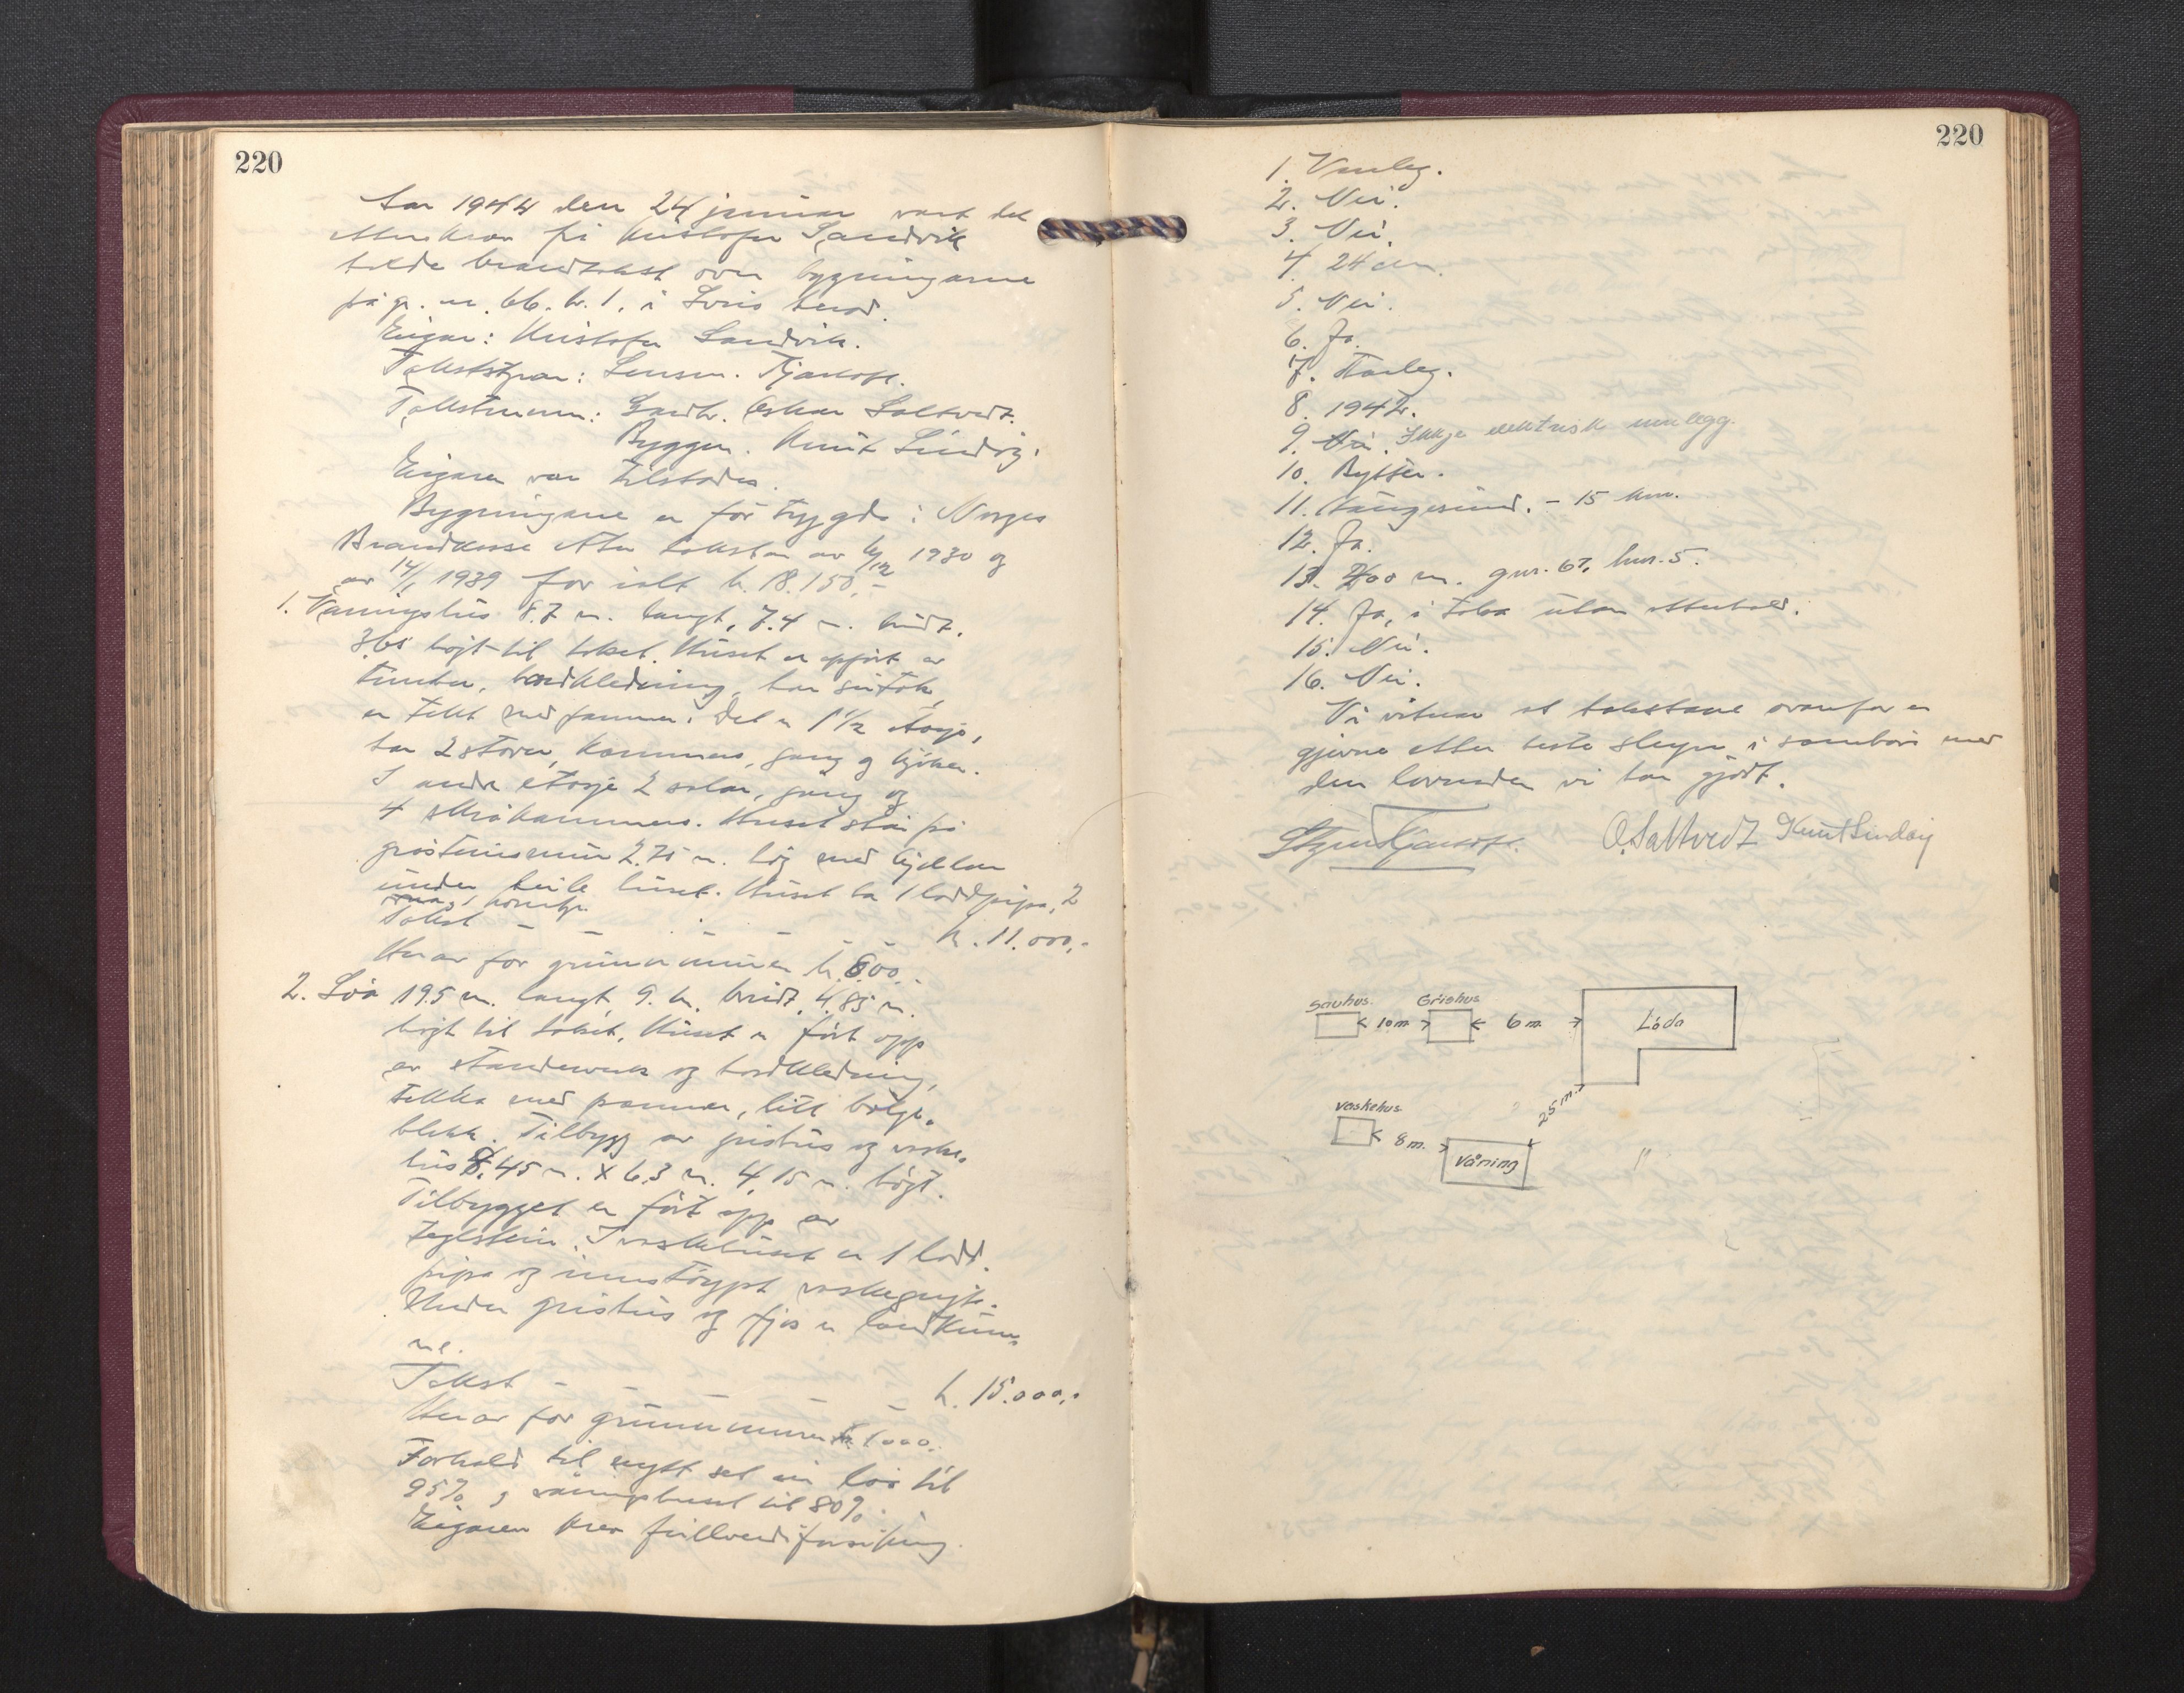 220
Aar 1944 den 24 januar vart det
etter krav frå Kristofer Sandvik
halde brandtakst over bygningarne
på g. nr. 66. br. 1. i Sveio herad.
Eigar: Kristofer Sandvik.
Takststyrar: Lensm. Tjanosf.
Takstmenn: Gardbr. Oskar Saltvedt.
Byggm. Knut Lindøy.
Eigaren var tilstades.
Bygningane er før trygda i Norges
Brandkasse etter takstar av 1930 og
av 14/1 1939 for ialt kr. 18.150,-
1. Våningshus 8.7 m. langt, 7.4 m. breidt.
3.65 høgt til taket. Huset er oppført av
timber, bordkledning, har sutak,
er tekt med pannor. Det er 1 1/2 etasje,
har 2 stover, kammers, gang og kjøken.
I andre etasje 2 salar, gang og
4 skråkammers. Huset står på
gråsteinsmur 2.75 m. høg med kjellar
under heile huset. Huset ha 1 loddpipa, 2
omnar, 1 komfyr.
Takst - - - - - - kr. 11.000,-
Herav for grunnmuren kr. 600.-
2. Löa 19.5 m. langt, 9. m. breidt, 4.85 m.
høgt til taket. Huset er ført opp
av standerverk og bordkledning,
tekka med pannor, litt bølge-
blekk. Tilbygg av grishus og vaske-
hus 8.45 m. x 6.3 m. 4.15 m. høgt.
Tilbygget er ført opp av
teglstein. I vaskehuset er 1 lodd.
pipa og innstøypt vaskegryte.
Under grishus og fjøs er landkum-
me.
Takst - - - - - kr. 15.000,-
Herav for grunnmuren kr. 1000.
Forhold til nytt set ein løa til
95% og våningshuset til 80%.
Eigaren krev fullverdiforsikring.
220
1. Vanleg.
2. Nei.
3. Nei.
4. 24 cm.
5. Nei.
6. Ja.
7. Farleg.
8. 1942.
9. Nei. Ikkje elektrisk innlegg.
10. Bytter.
11. Haugesund. - 15 km.
12. Ja.
13. 200 m. gnr. 67, bnr. 5.
14. Ja, i tolva utan atterhald.
15. Nei.
16. Nei.
Vi vitnar at takstane ovanfor er
gjevne etter beste skjøn i samhøve med
den lovnaden vi har gjort.
O. Saltvedt Knut Lindøy
Sauhus. Grishus
10 m 6 m. Löda
25 m.
vaskehus
8 m. Våning